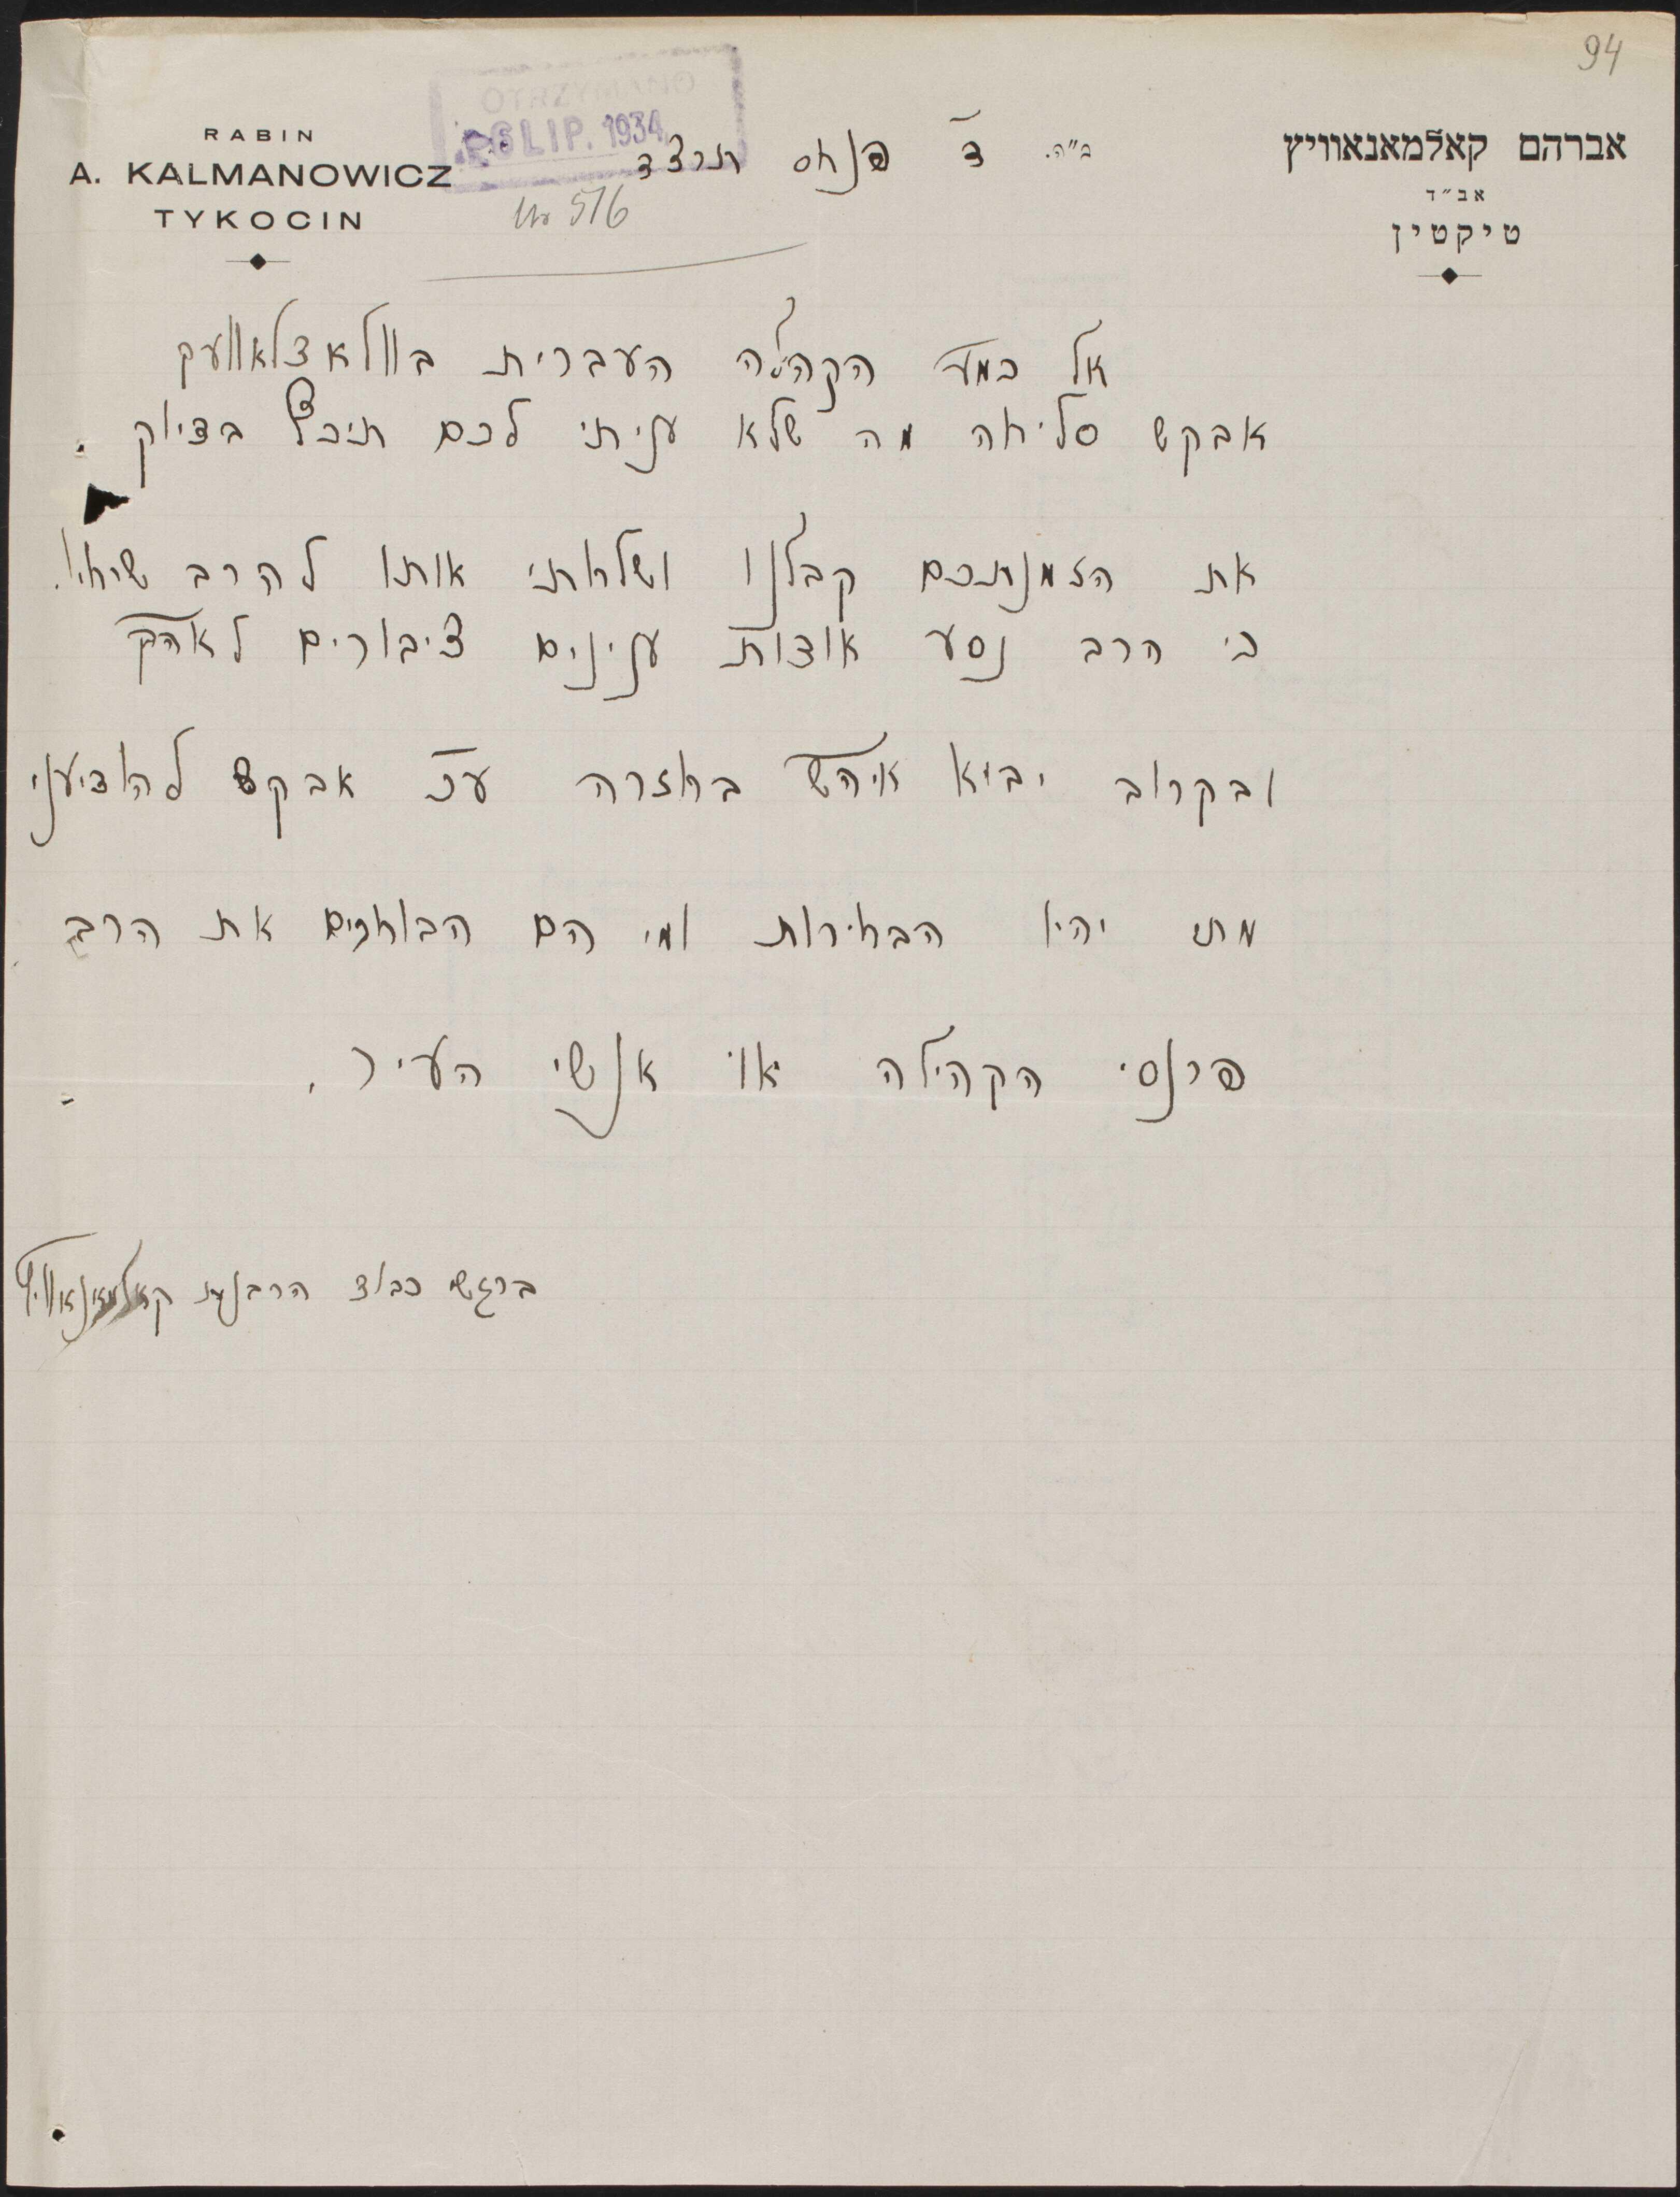 94
RABIN
A. KALMANOWICZ
TYKOCIN
OTRZYMANO
LIP. 1934
№ 576
אברהם קאלמאנאוויץ
אב״ד
טיקטין
ב״ה. ד׳ פנחס תרצד
אל כמע׳ הקהלה העברית בוולאצלאוועק
אבקש סליחה מה שלא עניתי לכם תיכף בדיוק.
את הזמנתכם קבלנו ושלחתי אותו להרב שיחי׳.
כי הרב נסע אודות ענינים ציבורים
ובקרוב יביא אי״ה בחזרה ע״כ אבקש להודיעני
מתי יהיו הבחירות ומי הם הבוחרים את הרב
פרנסי הקהילה או אנשי העיר.
ברגשי כבוד הרבנית קאלמאנאוויץ